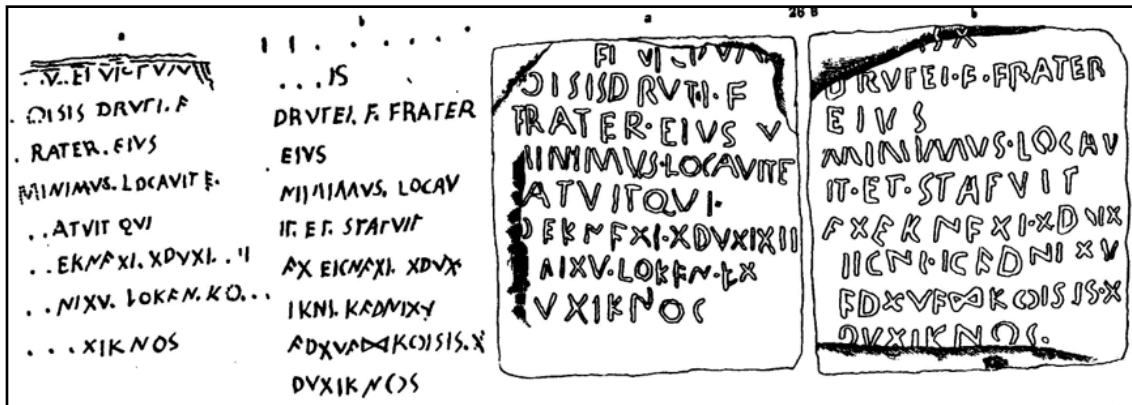 a
OISIS DRVTI. F
. RATER. EIVS
MINIMVS. LOCAVIT E.
. . ATVIT QVI
. . EKNAXI. XDVXI. . II
. . NIXV. LOKAN. KO. . .
. . . XIKNOS
b
. . . IS
DRVTEI. F. FRATER
EIVS
MINIMVS. LOCAV
IT. ET. STATVIT
AX EICNAXI. XDVX
IKNI. KADNIXV
ADXVA⋈KOISIS. X
DVXIKNOS
a
OISIS DRVTI. F
FRATER·EIVS V
MINIMVS·LOCAVITE
ATVITQVI·
EKNAXI·XDVXIXII
NIXV·LOKAN·KX
VXIKNOC
26 B b
DRVTEI·F·FRATER
EIVS
MINIMVS·LOCAV
IT·ET·STATVIT
AXEKNAXI·XDVIX
IICNI·ICADNIXV
ADXVA⋈KOISIS·X
DVXIKNOS·